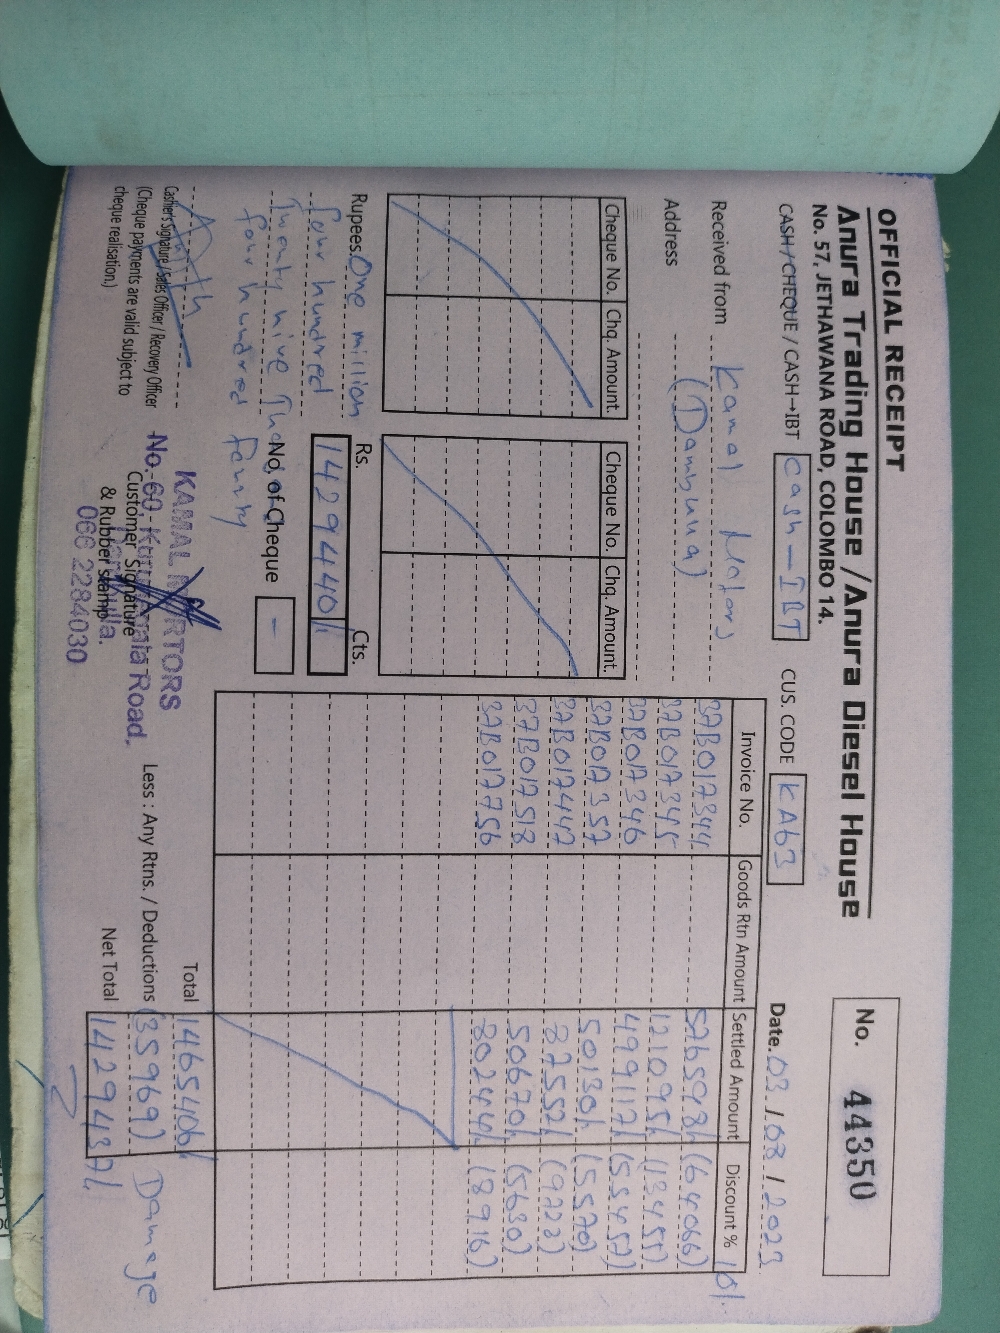 OFFICIAL RECEIPT
Anura Trading House / Anura Diesel House
No. 57, JETHAWANA ROAD, COLOMBO 14.
No. 44350
CASH / CHEQUE / CASH→IBT Cash - IBT
CUS. CODE KA63
Date. 03 / 08 / 2023
Received from Kamal Motors
Address (Dambulla)
Cheque No. Chq. Amount. Cheque No. Chq. Amount.
Invoice No. Goods Rtn Amount Settled Amount Discount % 10%
37B017344 576598/- (64066)
37B017345 121095/- (13455)
37B017346 499117/- (55457)
37B017357 50130/- (5570)
37B017447 87552/- (9728)
37B017518 50670/- (5630)
37B017756 80244/- (8916)
Rupees. One million
four hundred
Twenty nine Thousand
four hundred fourty
Rs. Cts.
1429440/-
No. of Cheque -
Total 1465406/-
Less : Any Rtns. / Deductions (35969) Damage
Net Total 1429437/-
Casher's Signature / Sales Officer / Recovery Officer
(Cheque payments are valid subject to
cheque realisation.)
Customer Signature
& Rubber stamp
KAMAL MORTORS
No. 60, Kurunegala Road,
Dambulla.
066 2284030